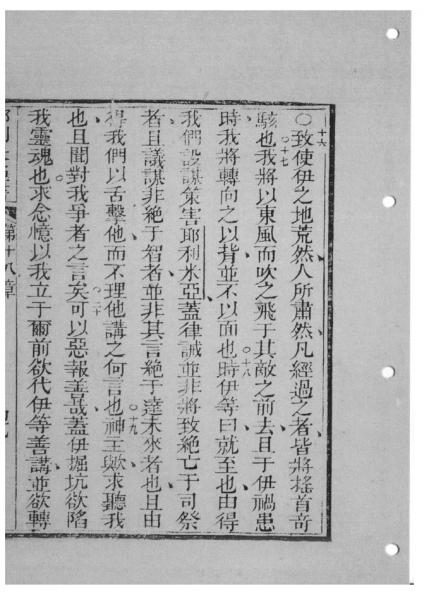 十六
○致使伊之地荒然人所肅然凡經過之者皆將搖首竒
十七
駭也我將以東風而吹之飛于其敵之前去且于伊禍患
時我將轉向之以背並不以面也時伊等曰就至也由得
十八
我們設謀策害耶利米亞蓋律誡並非將致絶亡于司祭
者且議謀非絶于智者並非其言絶于達未來者也且由
得我們以舌擊他而不理他講之何言也神主歟求聽我
十九
也且聞對我爭者之言矣可以惡報善哉蓋伊堀坑欲陷
二十
我靈魂也求念憶以我立于爾前欲代伊等善講並欲轉
第十八章